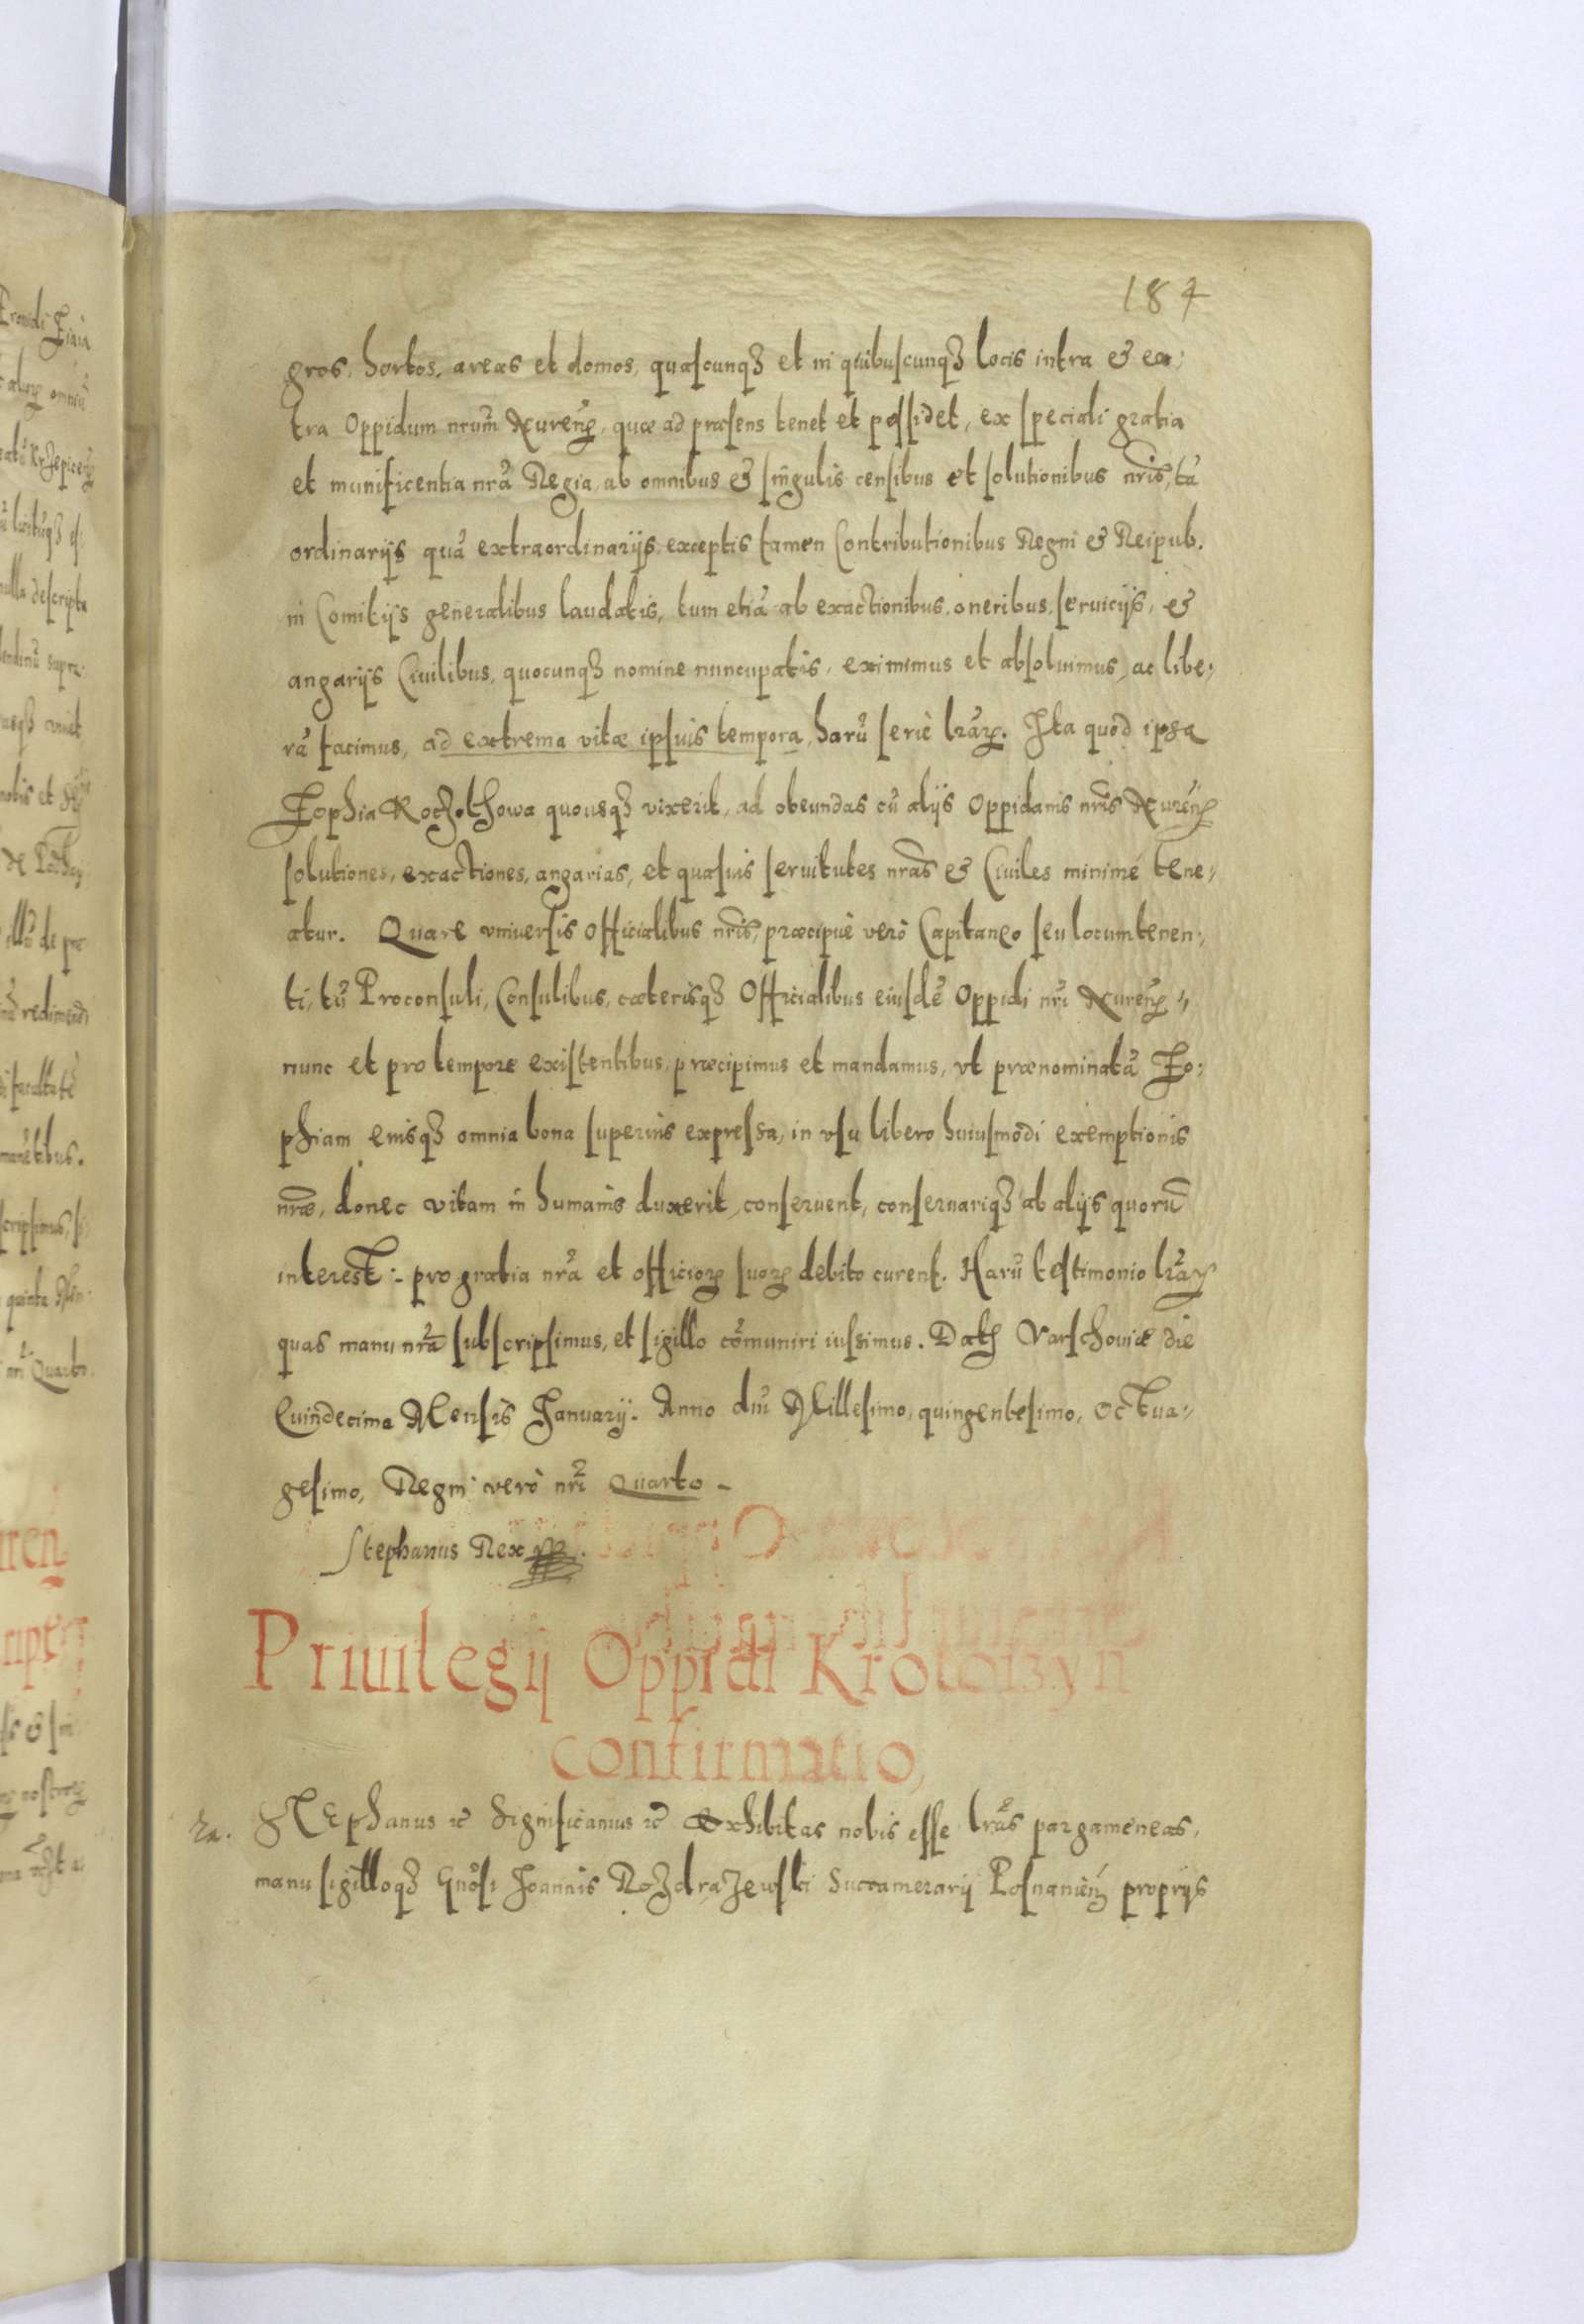 184
gros, hortos, areas et domos, quascunqꝫ et in quibuscunqꝫ locis intra & ex⸗
tra Oppidum nrum̃ Xurenꝭ, quæ ad præsens tenet et possidet, ex speciali gratia
et munificentia nrã Regia, ab omnibus & singulis censibus et solutionibus nris̃, tã
ordinarijs quã extraordinarijs, exceptis tamen Contributionibus Regni & Reipub.
in Comitijs generalibus laudatis, tum etiã ab exactionibus, oneribus, seruicijs, &
angarijs Ciuilibus, quocunqꝫ nomine nuncupatis, eximimus et absoluimus, ac libe⸗
rã facimus, ad extrema vitæ ipsius tempora, harũ seriè lrãꝝ. Ita quod ipsa
Zophia quousqꝫ vixerit, ad obeundas cũ alijs Oppidanis nris̃ Xurenꝭ
solutiones, exactiones, angarias, et quasuis seruitutes nrãs & Ciuiles minimé tene⸗
atur. Quare vniuersis Officialibus nris̃, præcipuè verò Capitaneo seu locumtenen⸗
ti, tũ Proconsuli, Consulibus, cæterisqꝫ Officialibus eiusdẽ Oppidi nrĩ Xurenꝭ,
nunc et pro tempore existentibus, præcipimus et mandamus, vt prænominatã Zo⸗
phiam eiusqꝫ omnia bona superius expressa, in vsu libero huiusmodi exemptionis
nræ̃, donec vitam in humanis duxerit, conseruent, conseruariqꝫ ab alijs quorũ
interest: pro gratia nrã et officioꝝ suoꝝ debito curent. Harũ testimonio lrãꝝ
quas manu nrã subscripsimus, et sigillo cõmuniri iussimus. Datꝭ Varschouiæ die
Quindecima Mensis Januarij. Anno dnĩ Millesimo, quingentesimo, Octua⸗
gesimo, Regni verò nrĩ Quarto
Stephanus Rex
Priuilegij Oppidi Krotoszyn
confirmatio,
Stephanus ꝛc̃ Significamus ꝛc̃ Exhibitas nobis esse lrãs pargameneas,
manu sigilloqꝫ Gnõsi Joannis Rozdrazewski Succamerarij Posnanienꝭ proprijs